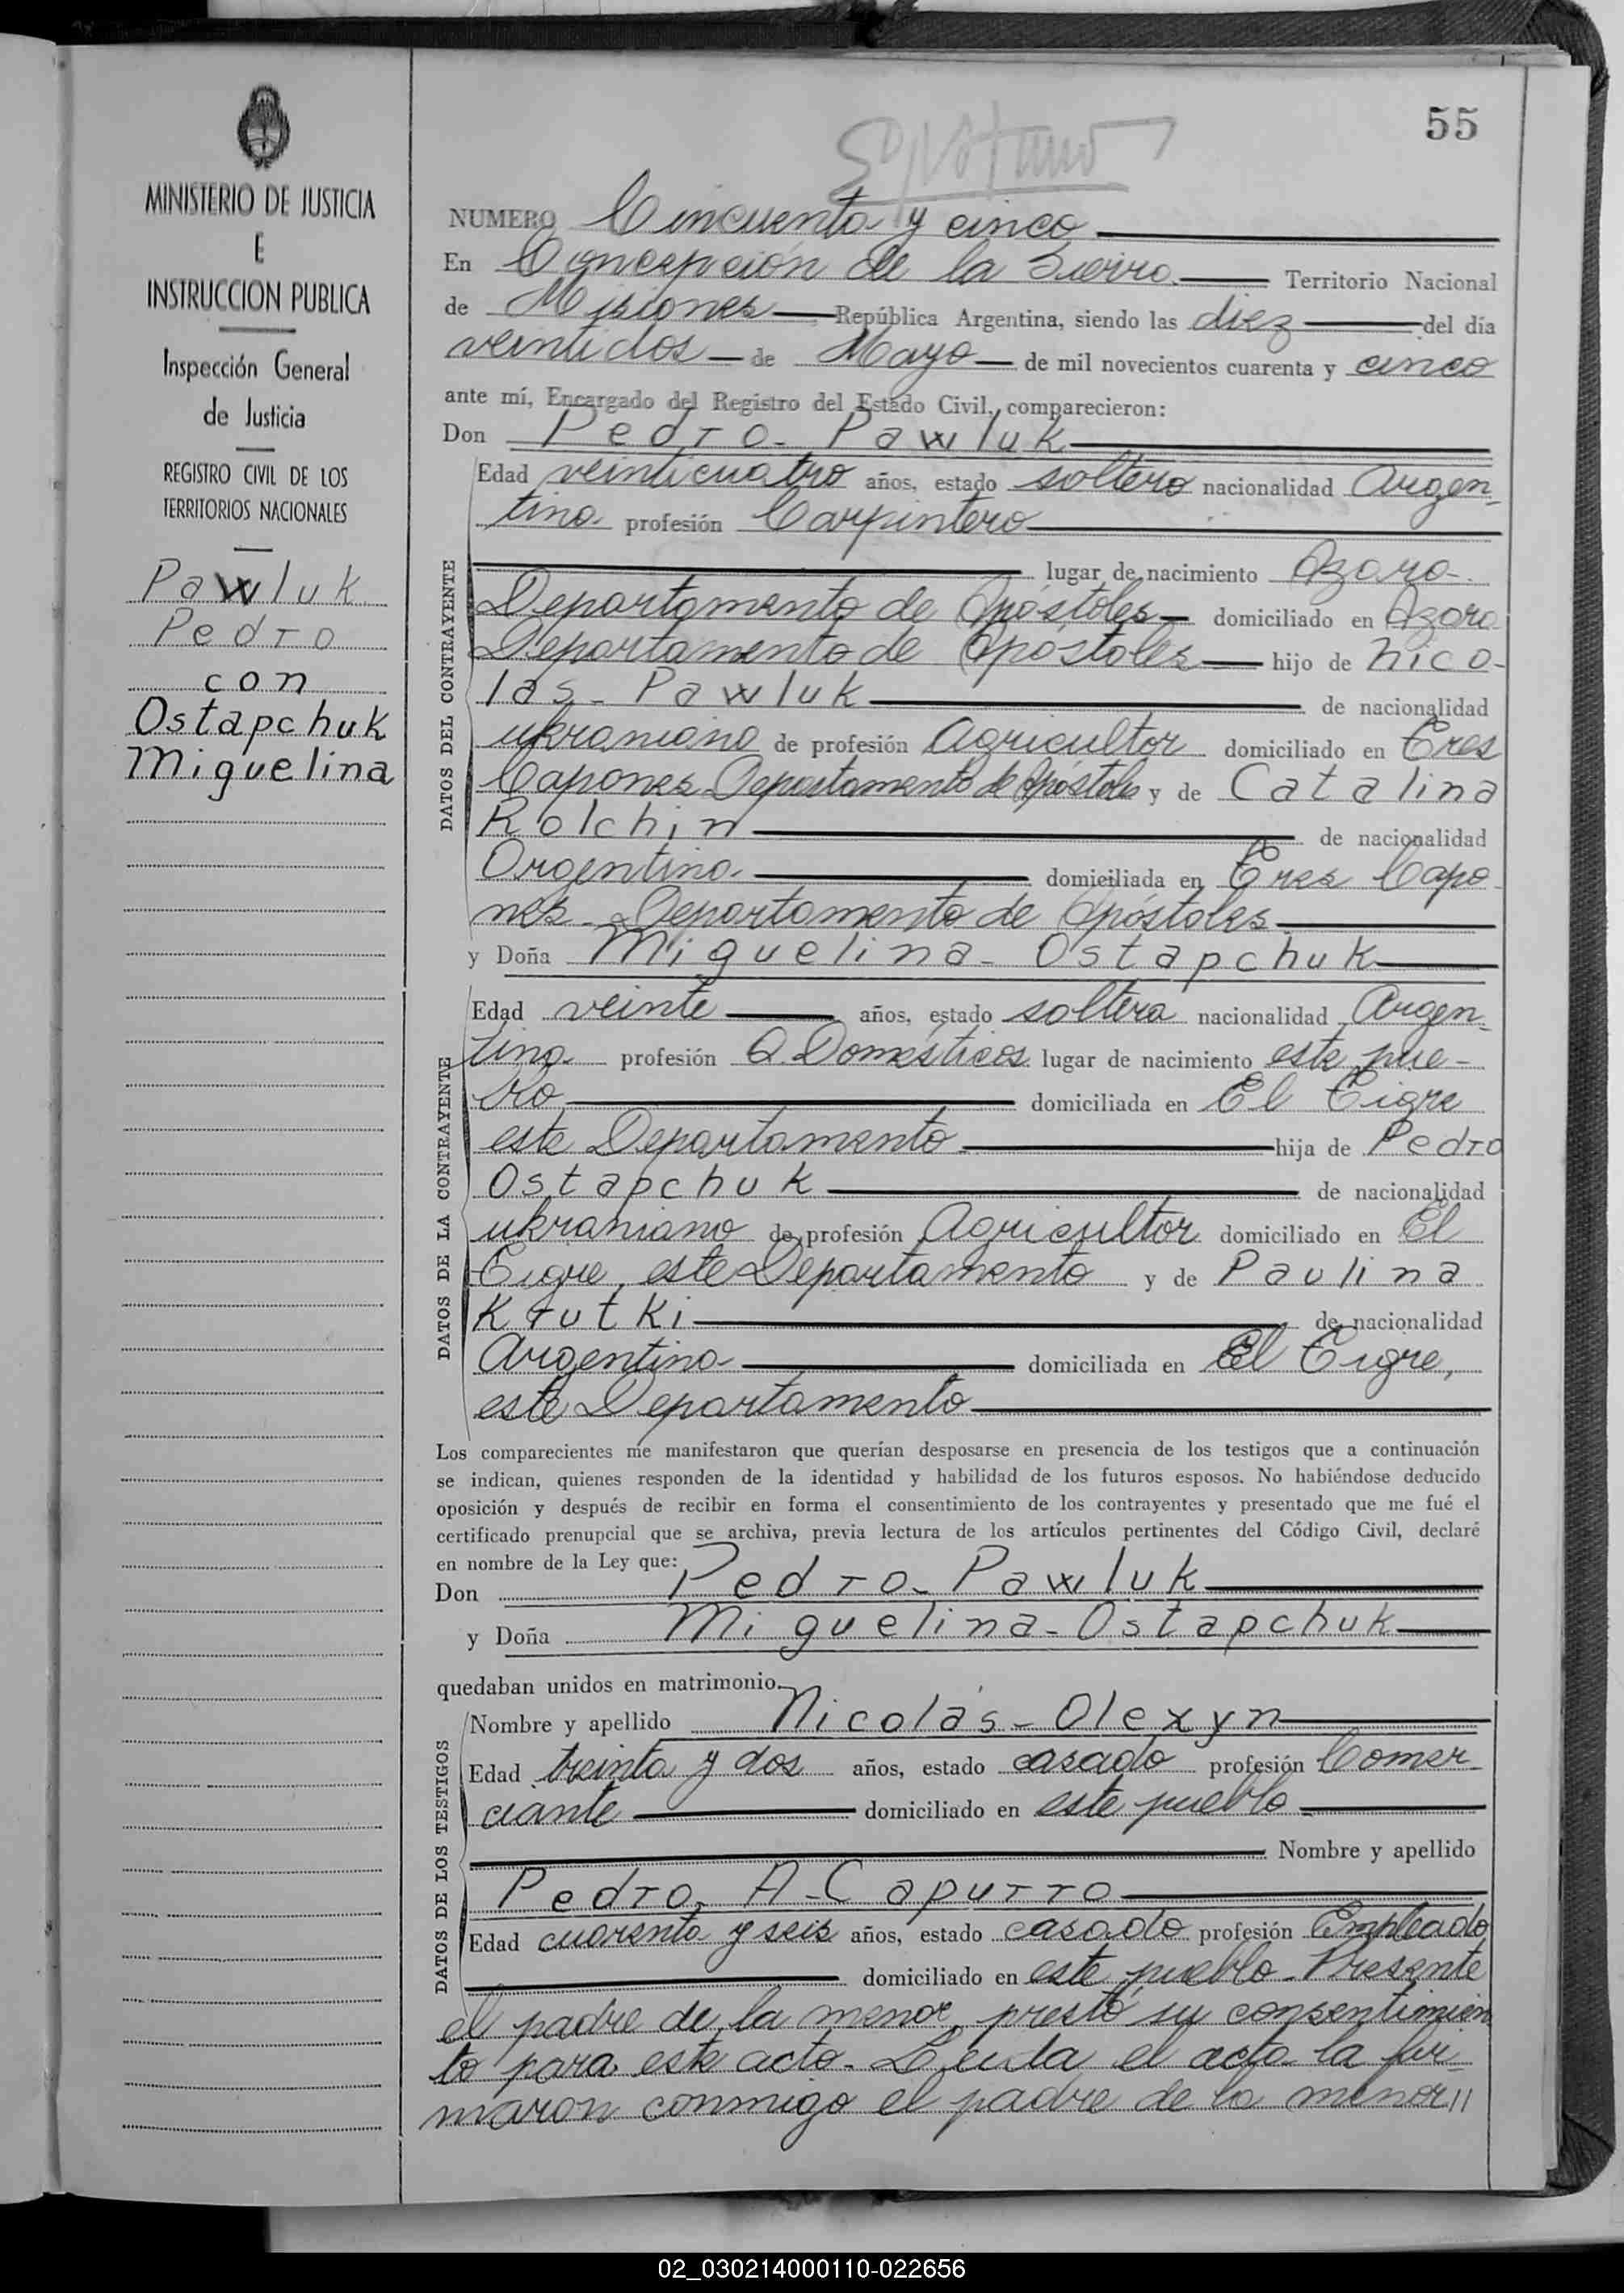 MINISTERIO DE JUSTICIA
E
INSTRUCCION PUBLICA
Inspección General
de Justicia
REGISTRO CIVIL DE LOS
TERRITORIOS NACIONALES
Pawluk
Pedro
con
Ostapchuk
Miguelina
55
NUMERO Cincuenta y cinco
En Concepción de la Sierra Territorio Nacional
de Misiones República Argentina, siendo las diez del día
veintidos de Mayo de mil novecientos cuarenta y cinco
ante mí, Encargado del Registro del Estado Civil, comparecieron:
Don Pedro Pawluk
DATOS DEL CONTRAYENTE
Edad veinticuatro años, estado soltero nacionalidad Argen-
tina profesión Carpintero
lugar de nacimiento Azara
Departamento de Apóstoles domiciliado en Azara
Departamento de Apóstoles hijo de Nico-
las Pawluk de nacionalidad
ukraniano de profesión Agricultor domiciliado en Tres
Capones Departamento de Apóstoles y de Catalina
Rolchin de nacionalidad
Argentina domiciliada en Tres Capo-
nes Departamento de Apóstoles
y Doña Miguelina Ostapchuk
DATOS DE LA CONTRAYENTE
Edad veinte años, estado soltera nacionalidad Argen-
tina profesión Q. Domésticos lugar de nacimiento este pue-
blo domiciliada en El Tigre
este Departamento hija de Pedro
Ostapchuk de nacionalidad
ukraniano de profesión Agricultor domiciliado en El
Tigre, este Departamento y de Paulina
Krutki de nacionalidad
Argentina domiciliada en El Tigre,
este Departamento
Los comparecientes me manifestaron que querían desposarse en presencia de los testigos que a continuación
se indican, quienes responden de la identidad y habilidad de los futuros esposos. No habiéndose deducido
oposición y después de recibir en forma el consentimiento de los contrayentes y presentado que me fué el
certificado prenupcial que se archiva, previa lectura de los artículos pertinentes del Código Civil, declaré
en nombre de la Ley que:
Don Pedro Pawluk
y Doña Miguelina Ostapchuk
quedaban unidos en matrimonio.
DATOS DE LOS TESTIGOS
Nombre y apellido Nicolás Olexyn
Edad treinta y dos años, estado casado profesión Comer-
ciante domiciliado en este pueblo
Nombre y apellido
Pedro A. Capurro
Edad cuarenta y seis años, estado casado profesión Empleado
domiciliado en este pueblo. Presente
el padre de la menor, prestó su consentimien
to para este acto. Leida el acta la fir-
maron conmigo el padre de la menor//
02_030214000110-022656